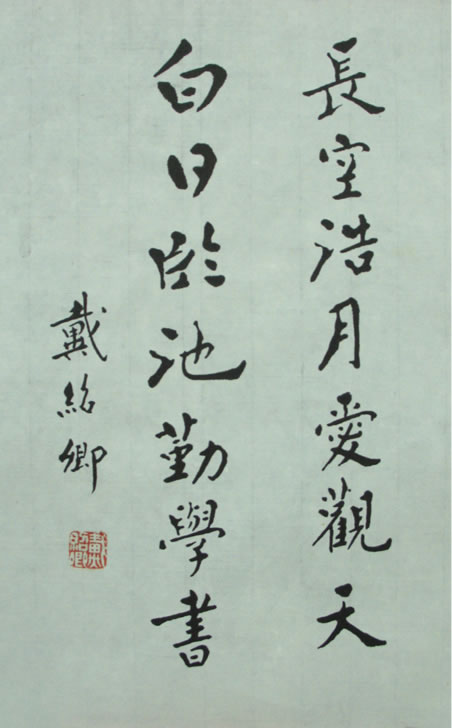 長空浩月愛觀天
白日臨池勤學書
戴紹卿
戴紹卿